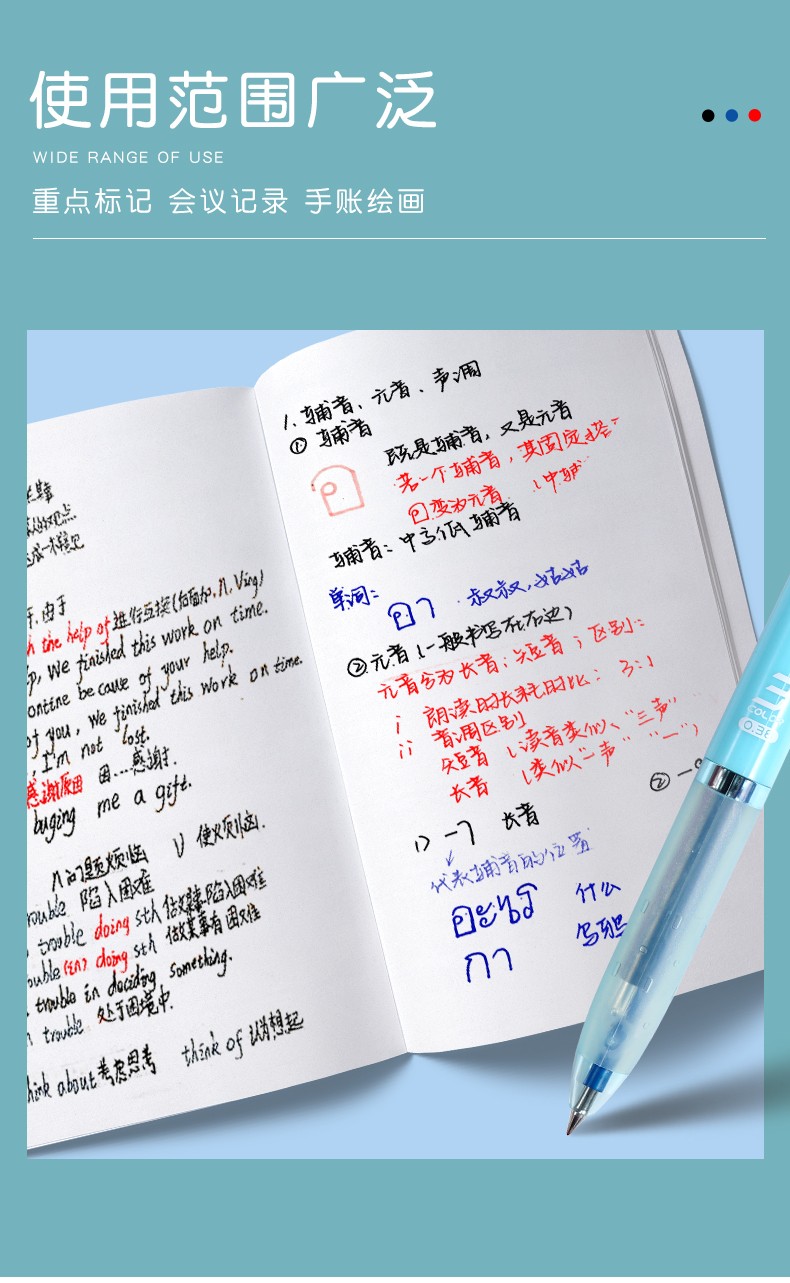 使用范围广泛
WIDE RANGE OF USE
重点标记 会议记录 手账绘画
由于
the help of 进行互换(后面加, n, Ving)
we finished this work on time.
because of your help.
of you, we finished this work on time.
I'm not lost.
感谢原因 因...感谢.
me a gift.
n 问题烦恼 V 使烦恼.
trouble 陷入困难
trouble doing sth 做某事陷入困难
doing sth 做某事有困难
trouble in deciding something.
trouble 处于困境中.
think about 考虑思考 think of 认为想起
1. 辅音、元音、声调
① 辅音
既是辅音, 又是元音
若一个辅音, 其固定搭
อ
变为元音
辅音: 中高低辅音
单词:
อา 叔叔, 姑姑
② 元音 (一般书写在右边)
元音分为长音; 短音; 区别:
i 朗读时长耗时比: 3:1
ii 音调区别
短音 读音类似 "三声"
长音 类似"一声" "一"
1) -า 长音
② -ะ
代表辅音的位置
อะไร 什么
กา 乌鸦
0.38